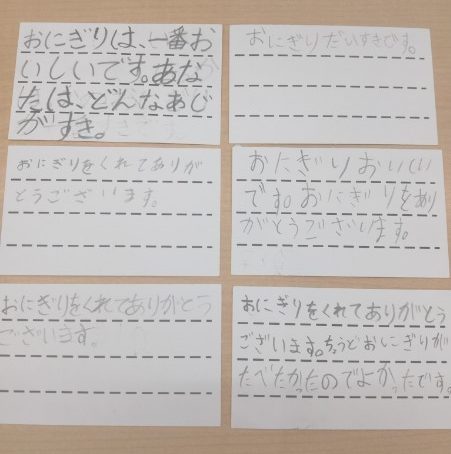 おにぎりは、一番お
いしいです。あな
たは、どんなあじ
がすき。
おにぎりだいすきです。
おにぎりをくれてありが
とうございます。
おにぎりおいしい
です。おにぎりをあり
がとうございます。
おにぎりをくれてありがとう
ございます。
おにぎりをくれてありがとう
ございます。ちょうどおにぎりが
たべたかったのでよかったです。